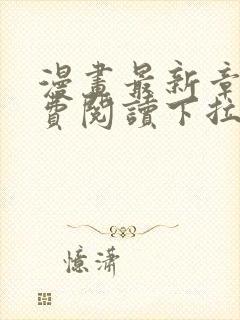 漫畫最新章
費閱讀下拉
憶瀟